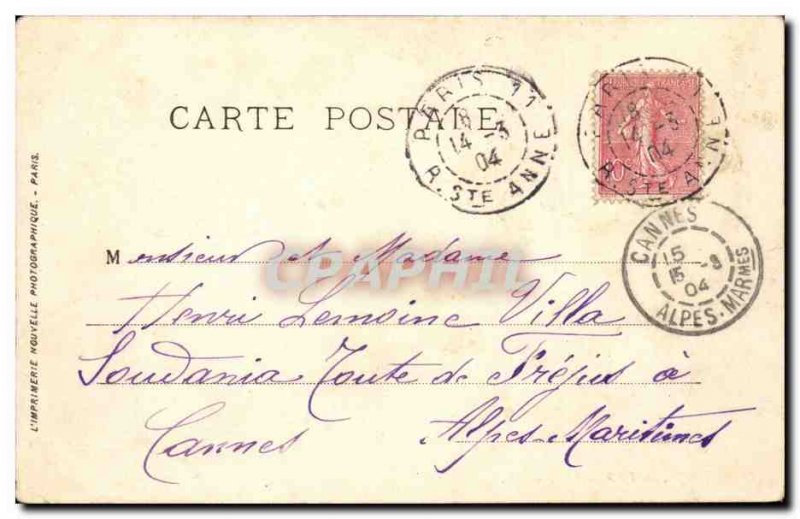 CARTE POSTALE
PARIS 11
8
14 -3
04
R. STE ANNE
8
14 -3
04
R. STE ANNE
10c
CANNES
15
15 -3
04
ALPES-MARMES
L'IMPRIMERIE NOUVELLE PHOTOGRAPHIQUE. - PARIS.
CPAPHIL
Monsieur et Madame
Henri Lemoine Villa
Soudania Route de Fréjus à
Cannes Alpes-Maritimes